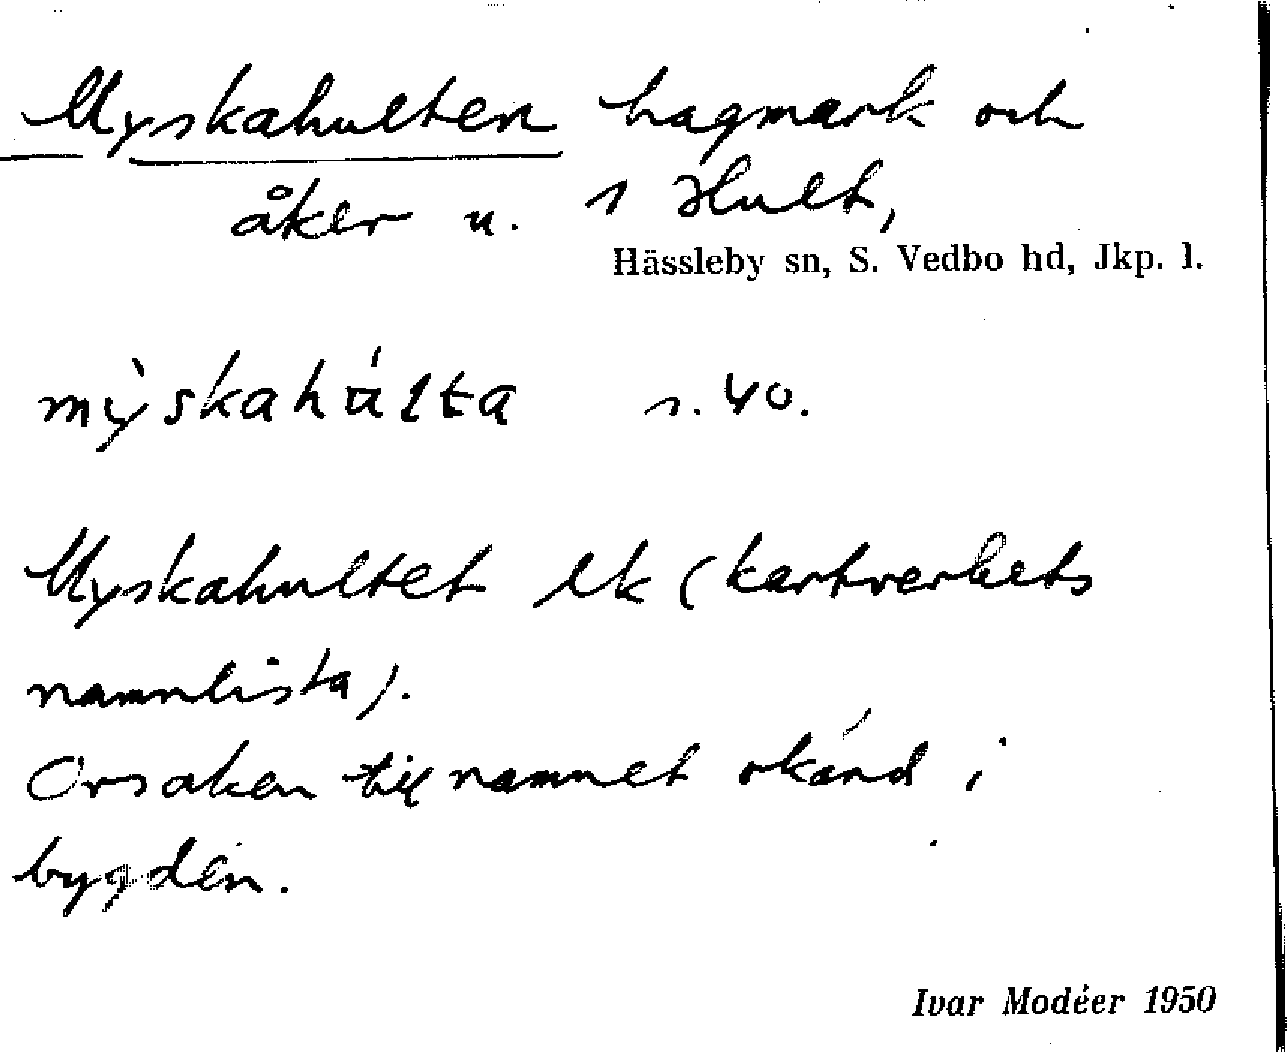 Myskahulten hagmark och
åker u. 1 Hult,
Hässleby sn, S. Vedbo hd, Jkp. l.
mỳskahúlta s. 40.
Myskahultet Uk (kartverkets
namnlista).
Orsaken till namnet okänd i
bygden.
Ivar Modéer 1950